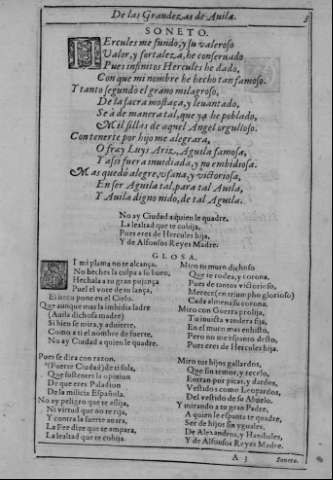 De las Grandezas de Auila.
SONETO.
HErcules me fundo, y su valeroso
Valor, y fortaleza, he conseruado
Pues infinitos Hercules he dado,
Con que mi nombre he hecho tan famoso.
Y tanto segundo el grano milagroso,
De la sacra mostaça, y leuantado,
Se a de manera tal, que ya he poblado,
Mil sillas de aquel Angel orgulloso.
Con tenerte por hijo me alegrara,
O fray Luys Ariz, Aguila famosa,
Y assi fuera inuidiada, y no embidiosa.
Mas quedo alegre, vfana, y victoriosa,
En ser Aguila tal, para tal Auila,
Y Auila digno nido, de tal Aguila.
No ay Ciudad a quien le quadre,
La lealtad que te cobija,
Pues eres de Hercules hija,
Y de Alfonsos Reyes Madre.
GLOSA.
SI mi pluma no te alcança,
No heches la culpa a su buelo,
Hechala a tu gran pujança
Pues el vote de tu lança,
El intento pone en el Cielo.
Que aunque mas la imbidia ladre
(Auila dichosa madre)
Si bien se mira, y aduierte,
Como a ti el nombre de fuerte,
No ay Ciudad a quien le quadre.
Pues se dira con razon,
(Fuerte Ciudad) de ti sola,
Que sustentas la opinion
De que eres Paladion
De la milicia Española.
No ay peligro que te aflija,
Ni virtud que no te rija,
Y contra la fuerte
La Fee dize que te ampara,
La lealtad que te cobija
Miro tu muro dichoso
Que te rodea, y corona,
Pues de tantos victorioso,
Merece (en triumpho glorioso)
Cada almena su corona.
Miro con Guerra prolija,
Tu inuicta vandera fija,
En el muro mas enhiesto,
Pero no me espanto desto,
Pues eres de Hercules hija.
Miro tus hijos gallardos,
Que sin temor, y recelo,
Entran por picas, y dardos,
Vestidos como Leopardos,
Del vestido de su Abuelo.
Y mirando a tu gran Padre,
A quien le espanta te quadre,
Ser de hijos sin yguales,
De Alexandros, y Haniuales,
Y de Alfonsos Reyes Madre.
A 3
Soneto.